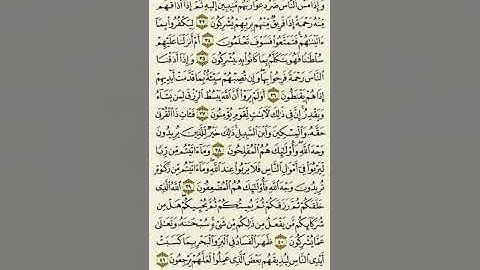 وَإِذَا مَسَّ ٱلنَّاسَ ضُرٌّ دَعَوْا۟ رَبَّهُم مُّنِيبِينَ إِلَيْهِ ثُمَّ إِذَآ أَذَاقَهُم
مِّنْهُ رَحْمَةً إِذَا فَرِيقٌ مِّنْهُم بِرَبِّهِمْ يُشْرِكُونَ ٣٣ لِيَكْفُرُوا۟ بِمَآ
ءَاتَيْنَٰهُمْ فَتَمَتَّعُوا۟ فَسَوْفَ تَعْلَمُونَ ٣٤ أَمْ أَنزَلْنَا عَلَيْهِمْ
سُلْطَٰنًا فَهُوَ يَتَكَلَّمُ بِمَا كَانُوا۟ بِهِۦ يُشْرِكُونَ ٣٥ وَإِذَآ أَذَقْنَا
ٱلنَّاسَ رَحْمَةً فَرِحُوا۟ بِهَا وَإِن تُصِبْهُمْ سَيِّئَةٌۢ بِمَا قَدَّمَتْ أَيْدِيهِمْ
إِذَا هُمْ يَقْنَطُونَ ٣٦ أَوَلَمْ يَرَوْا۟ أَنَّ ٱللَّهَ يَبْسُطُ ٱلرِّزْقَ لِمَن يَشَآءُ
وَيَقْدِرُ إِنَّ فِى ذَٰلِكَ لَءَايَٰتٍ لِّقَوْمٍ يُؤْمِنُونَ ٣٧ فَـَٔاتِ ذَا ٱلْقُرْبَىٰ
حَقَّهُۥ وَٱلْمِسْكِينَ وَٱبْنَ ٱلسَّبِيلِ ذَٰلِكَ خَيْرٌ لِّلَّذِينَ يُرِيدُونَ
وَجْهَ ٱللَّهِ وَأُو۟لَٰٓئِكَ هُمُ ٱلْمُفْلِحُونَ ٣٨ وَمَآ ءَاتَيْتُم مِّن رِّبًا
لِّيَرْبُوَا۟ فِىٓ أَمْوَٰلِ ٱلنَّاسِ فَلَا يَرْبُوا۟ عِندَ ٱللَّهِ وَمَآ ءَاتَيْتُم مِّن زَكَوٰةٍ
تُرِيدُونَ وَجْهَ ٱللَّهِ فَأُو۟لَٰٓئِكَ هُمُ ٱلْمُضْعِفُونَ ٣٩ ٱللَّهُ ٱلَّذِى
خَلَقَكُمْ ثُمَّ رَزَقَكُمْ ثُمَّ يُمِيتُكُمْ ثُمَّ يُحْيِيكُمْ هَلْ مِن
شُرَكَآئِكُم مَّن يَفْعَلُ مِن ذَٰلِكُم مِّن شَىْءٍ سُبْحَٰنَهُۥ وَتَعَٰلَىٰ
عَمَّا يُشْرِكُونَ ٤٠ ظَهَرَ ٱلْفَسَادُ فِى ٱلْبَرِّ وَٱلْبَحْرِ بِمَا كَسَبَتْ
أَيْدِى ٱلنَّاسِ لِيُذِيقَهُم بَعْضَ ٱلَّذِى عَمِلُوا۟ لَعَلَّهُمْ يَرْجِعُونَ ٤١